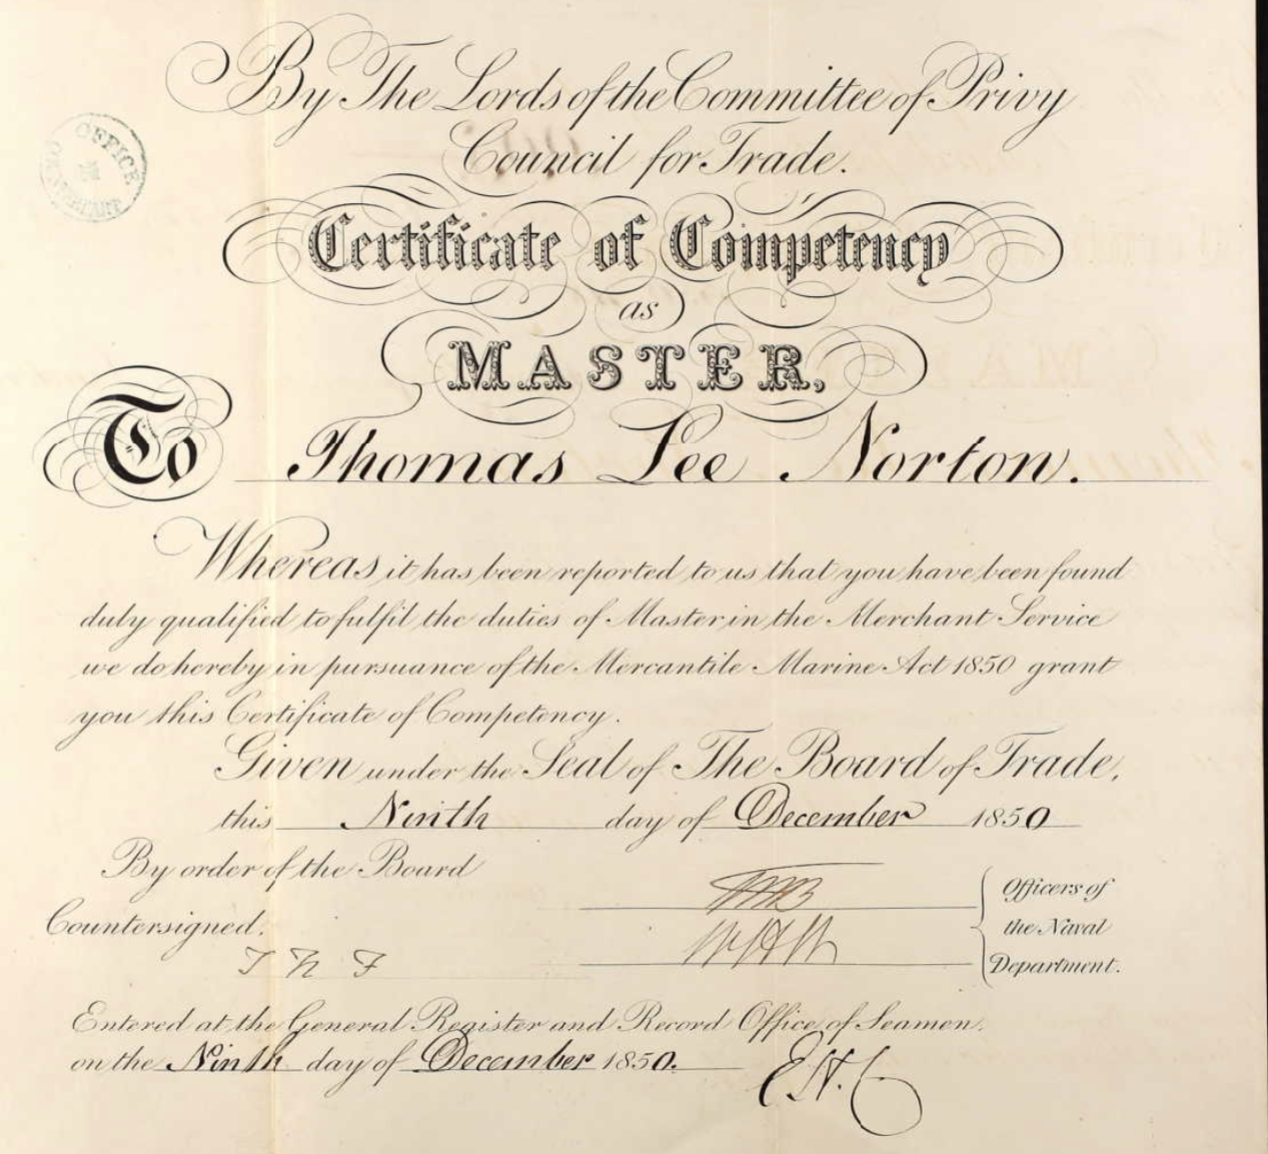 By The Lords of the Committee of Privy
Council for Trade.
OFFICE
Certificate of Competency
as
MASTER,
To Thomas Lee Norton.
Whereas it has been reported to us that you have been found
duly qualified to fulfil the duties of Master in the Merchant Service
we do hereby in pursuance of the Mercantile Marine Act 1850 grant
you this Certificate of Competency.
Given under the Seal of The Board of Trade,
this Ninth day of December 1850
By order of the Board
Officers of
the Naval
Department.
Countersigned.
Entered at the General Register and Record Office of Seamen.
on the Ninth day of December 1850.